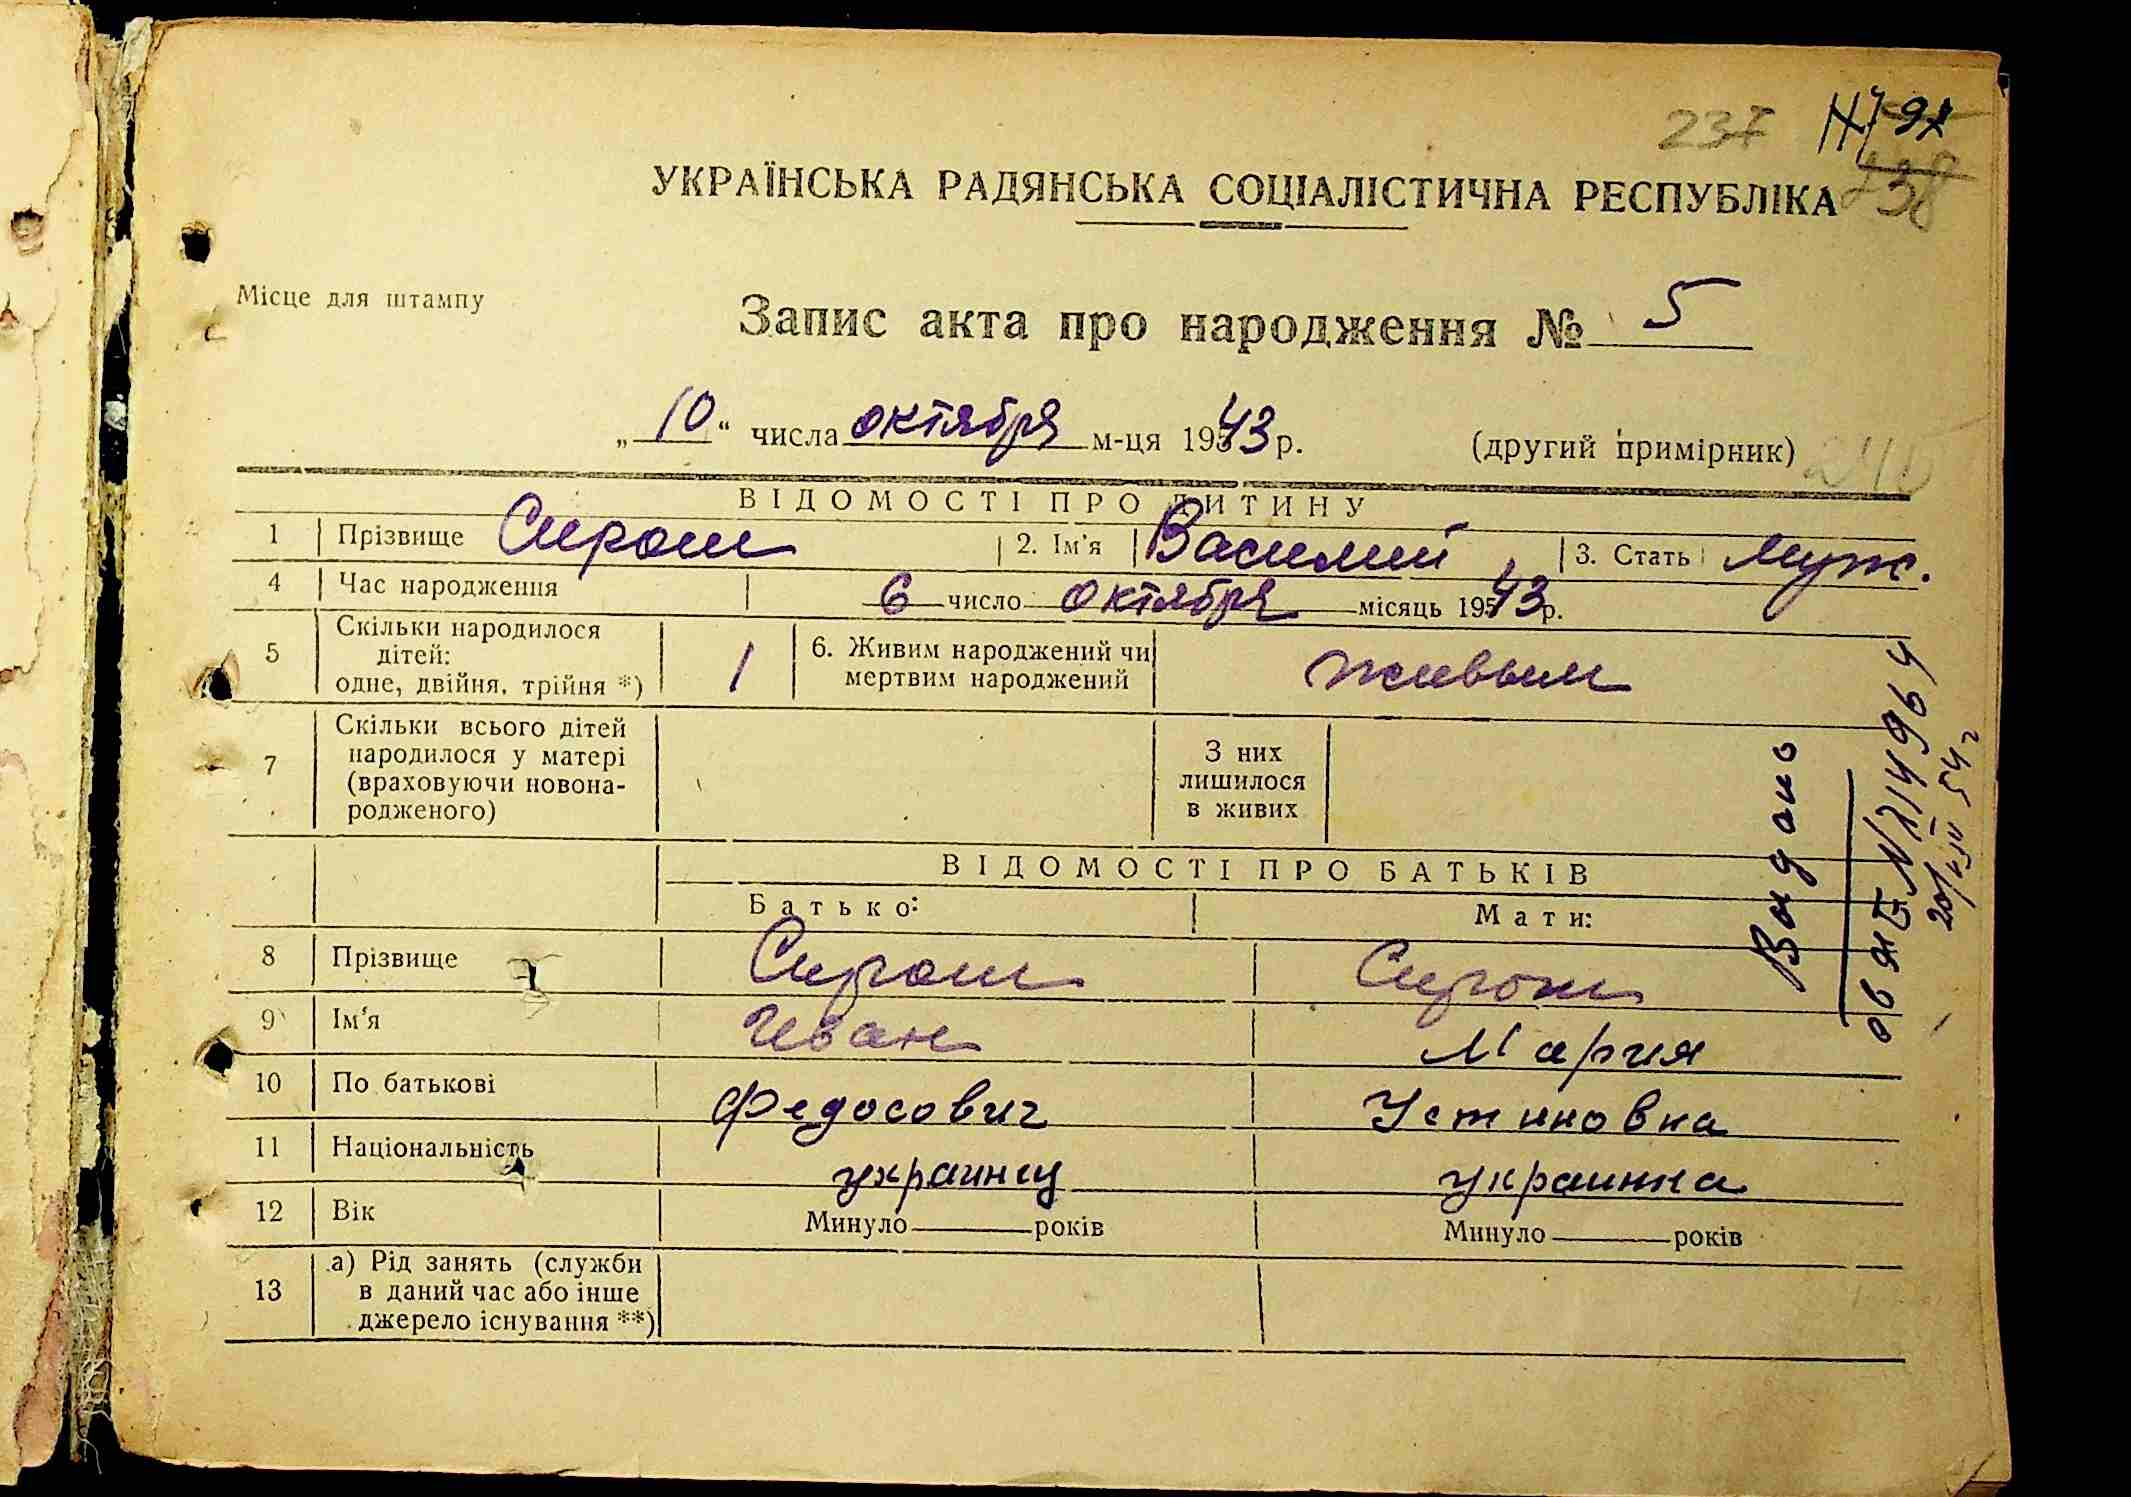 237 97
238
УКРАЇНСЬКА РАДЯНСЬКА СОЦІАЛІСТИЧНА РЕСПУБЛІКА
Місце для штампу
Запис акта про народження № 5
„10“ числа октября м-ця 1943 р. (другий примірник)
ВІДОМОСТІ ПРО ДИТИНУ
1 Прізвище Сирош 2. Ім'я Василий 3. Стать муж.
4 Час народження 6 число октября місяць 1943 р.
5 Скільки народилося дітей: одне, двійня, трійня *) 1 6. Живим народжений чи мертвим народжений живым
7 Скільки всього дітей народилося у матері (враховуючи новонародженого) З них лишилося в живих
ВІДОМОСТІ ПРО БАТЬКІВ
Батько: Мати:
8 Прізвище Сирош Сирош
9 Ім'я Иван Мария
10 По батькові Федосович Устиновна
11 Національність украинец украинка
12 Вік Минуло років Минуло років
13 а) Рід занять (служби в даний час або інше джерело існування **)
Видано